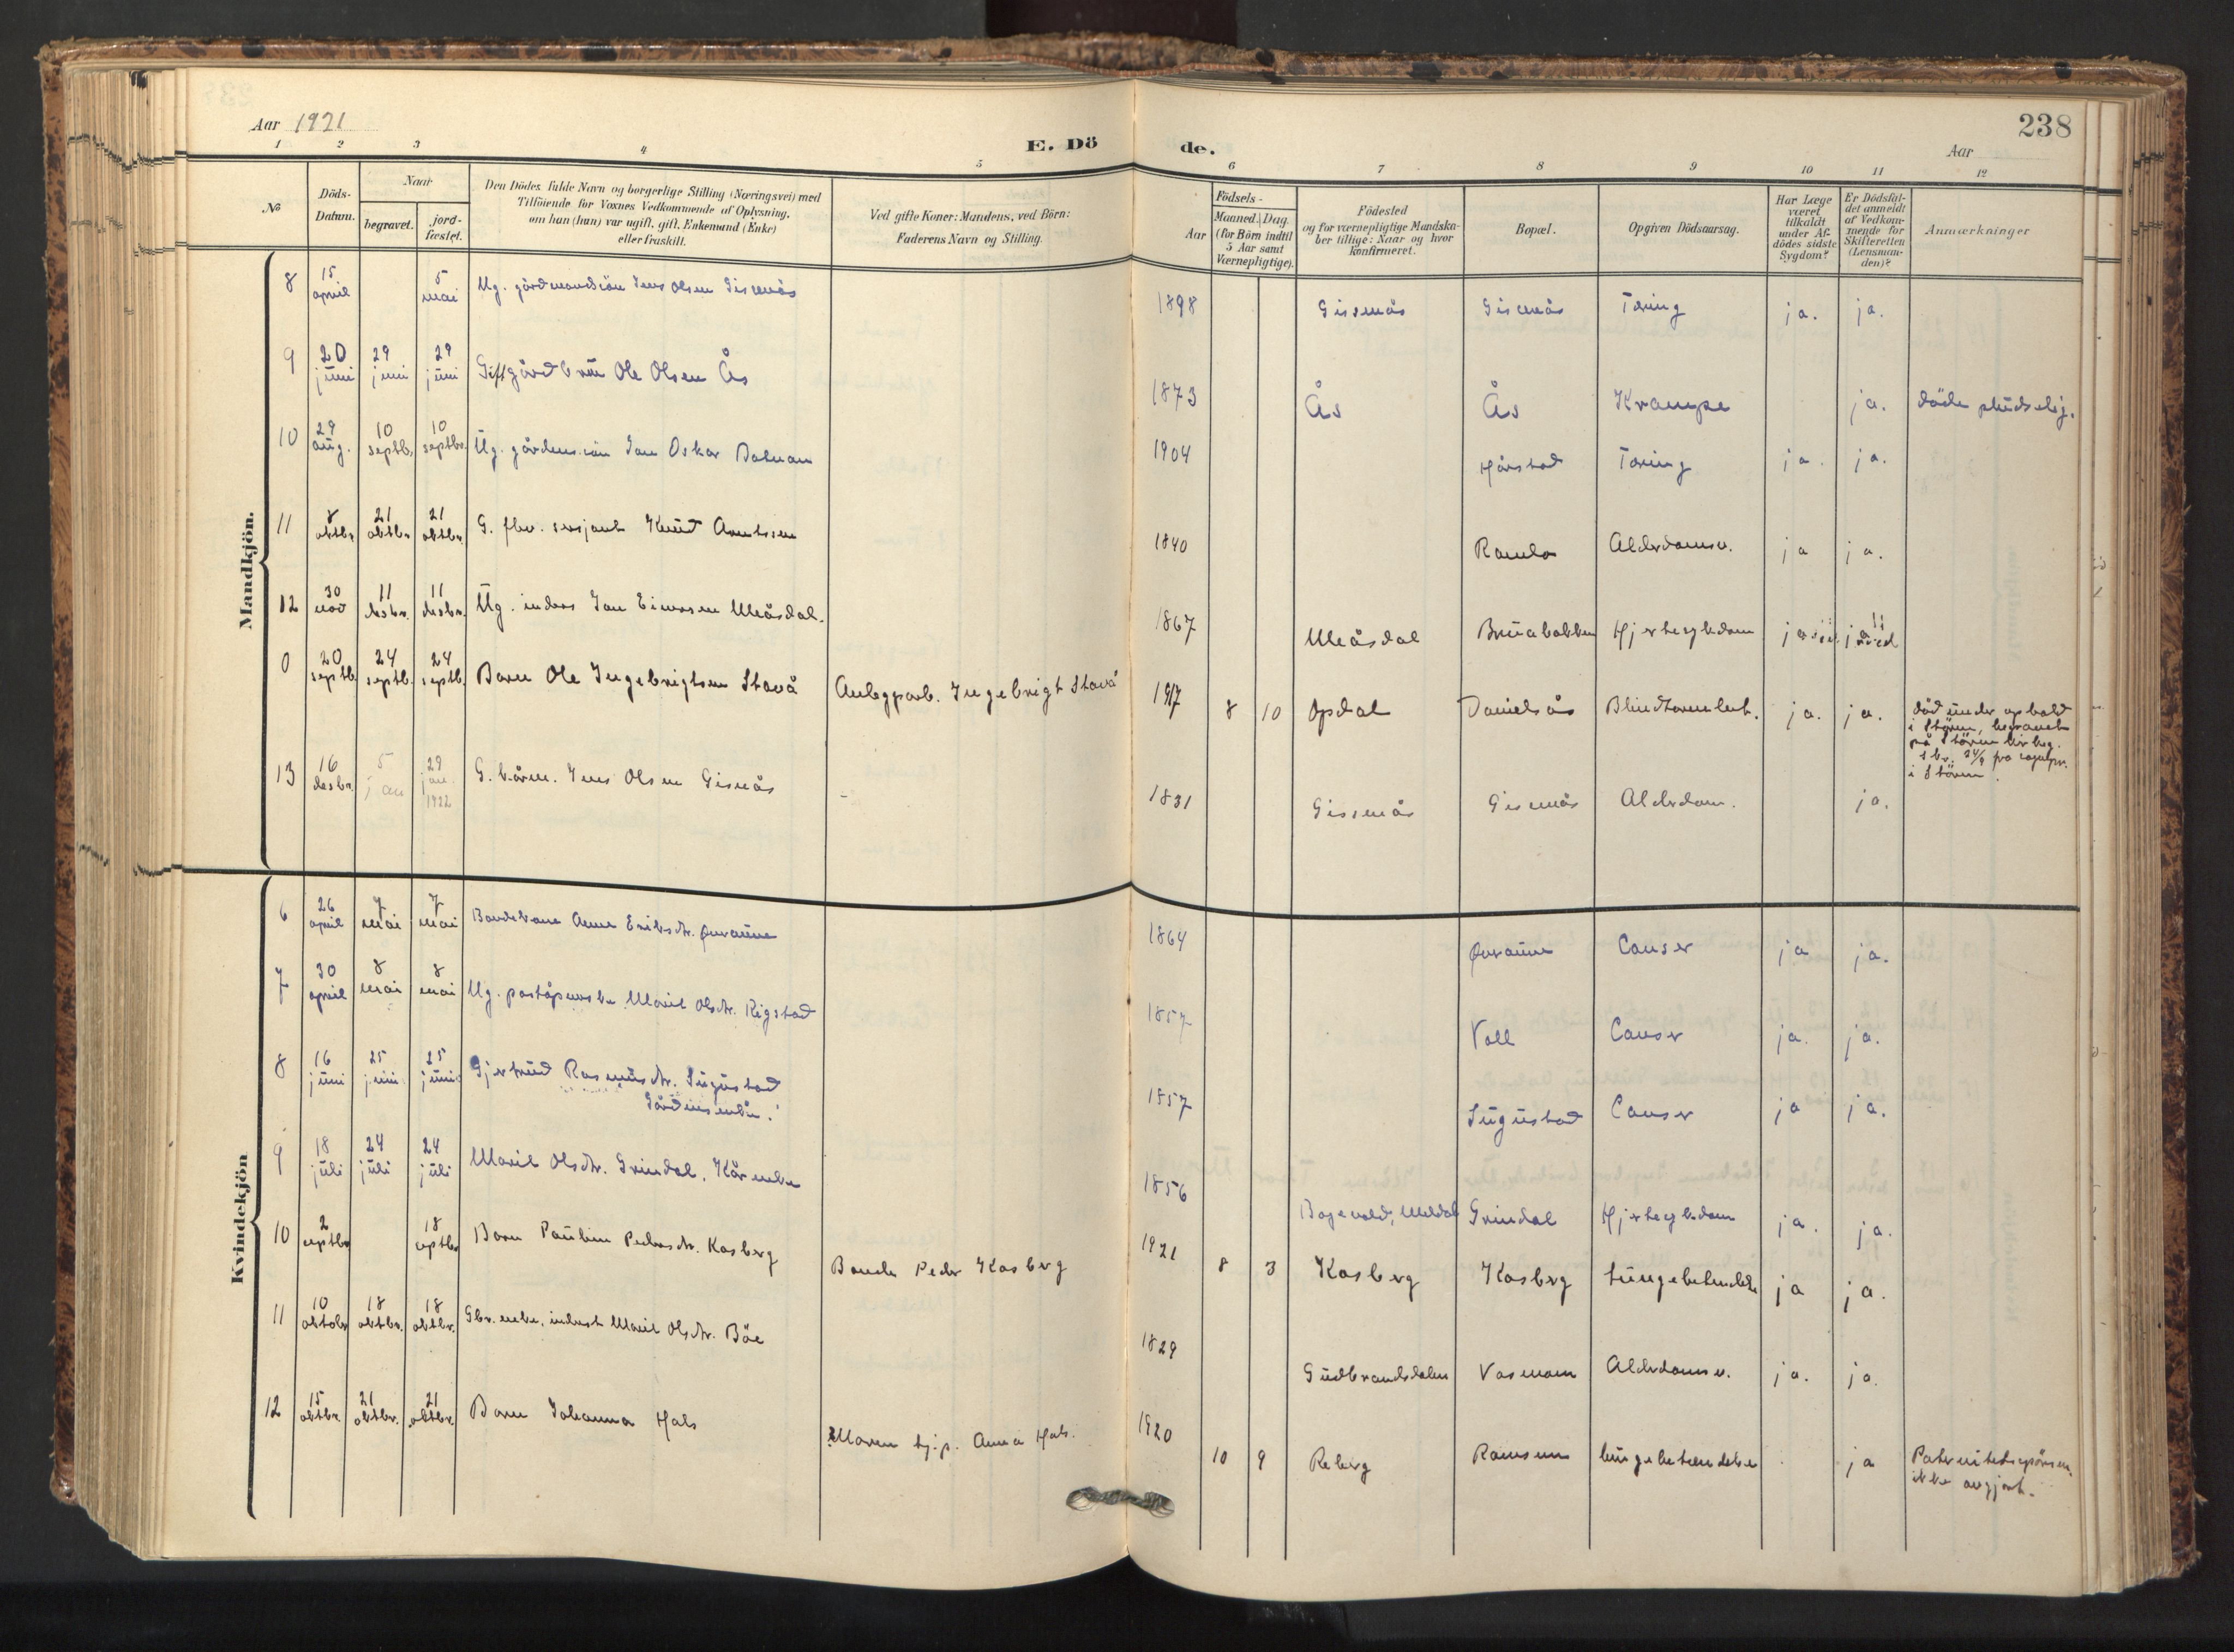 Aar 1921
E. Dö de.
238
Aar
1 2 3 4 5 6 7 8 9 10 11 12
No
Döds-Datum.
Naar
begravet.
jord-fæstet.
Den Dödes fulde Navn og borgerlige Stilling (Næringsvei) med
Tilföiende for Voxnes Vedkommende af Oplysning,
om han (hun) var ugift, gift, Enkemand (Enke)
eller fraskilt.
Ved gifte Koner: Mandens, ved Börn:
Faderens Navn og Stilling.
Födsels-
Aar
Maaned. Dag.
(for Börn indtil
5 Aar samt
Værnepligtige).
Födested
og for værnepligtige Mandska-
ber tillige: Naar og hvor
konfirmeret.
Bopæl.
Opgiven Dödsaarsag.
Har Læge
været
tilkaldt
under Af-
dödes sidste
Sygdom?
Er Dödsfal-
det anmeldt
af Vedkom-
mende for
Skifteretten
(Lensman-
den)?
Anmærkninger
Mandkjön.
8 15 april 5 mai Ug. Jens Olsen Gisnås 1898 Gissnås Gisnås Tæring ja. ja.
9 20 juni 29 juni 29 juni Gift gårdbr. Ole Olsen Ås 1873 Ås Ås Krampe ja. döde pludselig.
10 29 aug. 10 septb. 10 septbr. Ug. Jon Oskar 1904 Hårstad Tæring ja. ja.
11 8 oktbr. 21 oktbr. 21 oktbr. G. fhv. sersjant Knud Arntsen 1840 Ramlo Alderdomsv. ja ja.
12 30 nov 11 desbr. 11 desbr. Ug. inders Jon Einersen Uleåsdal. 1867 Uleåsdal Bruabakken Hjertesykdom
0 20 septb. 24 septb. 24 septb. Barn Ole Ingebrigtsen Stavå Anlegparb. Ingebrigt Stavå 1917 8 10 Opdal Danielsås Blindtarmbet. ja. ja. död under ophold
i Stören, begravet
på Stören kirkeg.
24/9
i Stören.
13 16 desbr. 5 jan 29 jan. 1922 G. kårm. Jens Olsen Gisnås - 1831 Gissnås Gisnås Alderdom. ja.
Kvindekjön
6 26 april 7 mai 7 mai Bondekone Anne Eriksdtr. 1864 Cancer ja ja.
7 30 april 8 mai 8 mai Ug. Marit Olsdtr. Rigstad 1857 Voll Cancer ja. ja.
8 16 juni 25 juni 25 juni Gjertrud Rasmusdtr. Sugustad
1857 Sugustad Cancer ja ja.
9 18 juli 24 juli 24 juli Marit Olsdtr. Grindal, Kårenke 1856 Meldal Grindal Hjertesykdom ja. ja.
10 2 septbr 18 septbr Barn Pauline Pedersdtr. Kosberg Bonde Peder Kosberg 1921 8 3 Kosberg Kosberg Lungebetendelse ja ja.
11 10 oktobr 18 oktbr. 18 oktbr. Gbr. enke, inderst Marit Olsdtr. Böe 1829 Gudbrandsdalen Alderdomsv. ja. ja.
12 15 oktbr. 21 oktbr. 21 oktbr. Barn Johanna Hals Moren tj.p. Anna Hals. 1920 10 9 Reberg lungebetændelse ja
ikke avgjort.